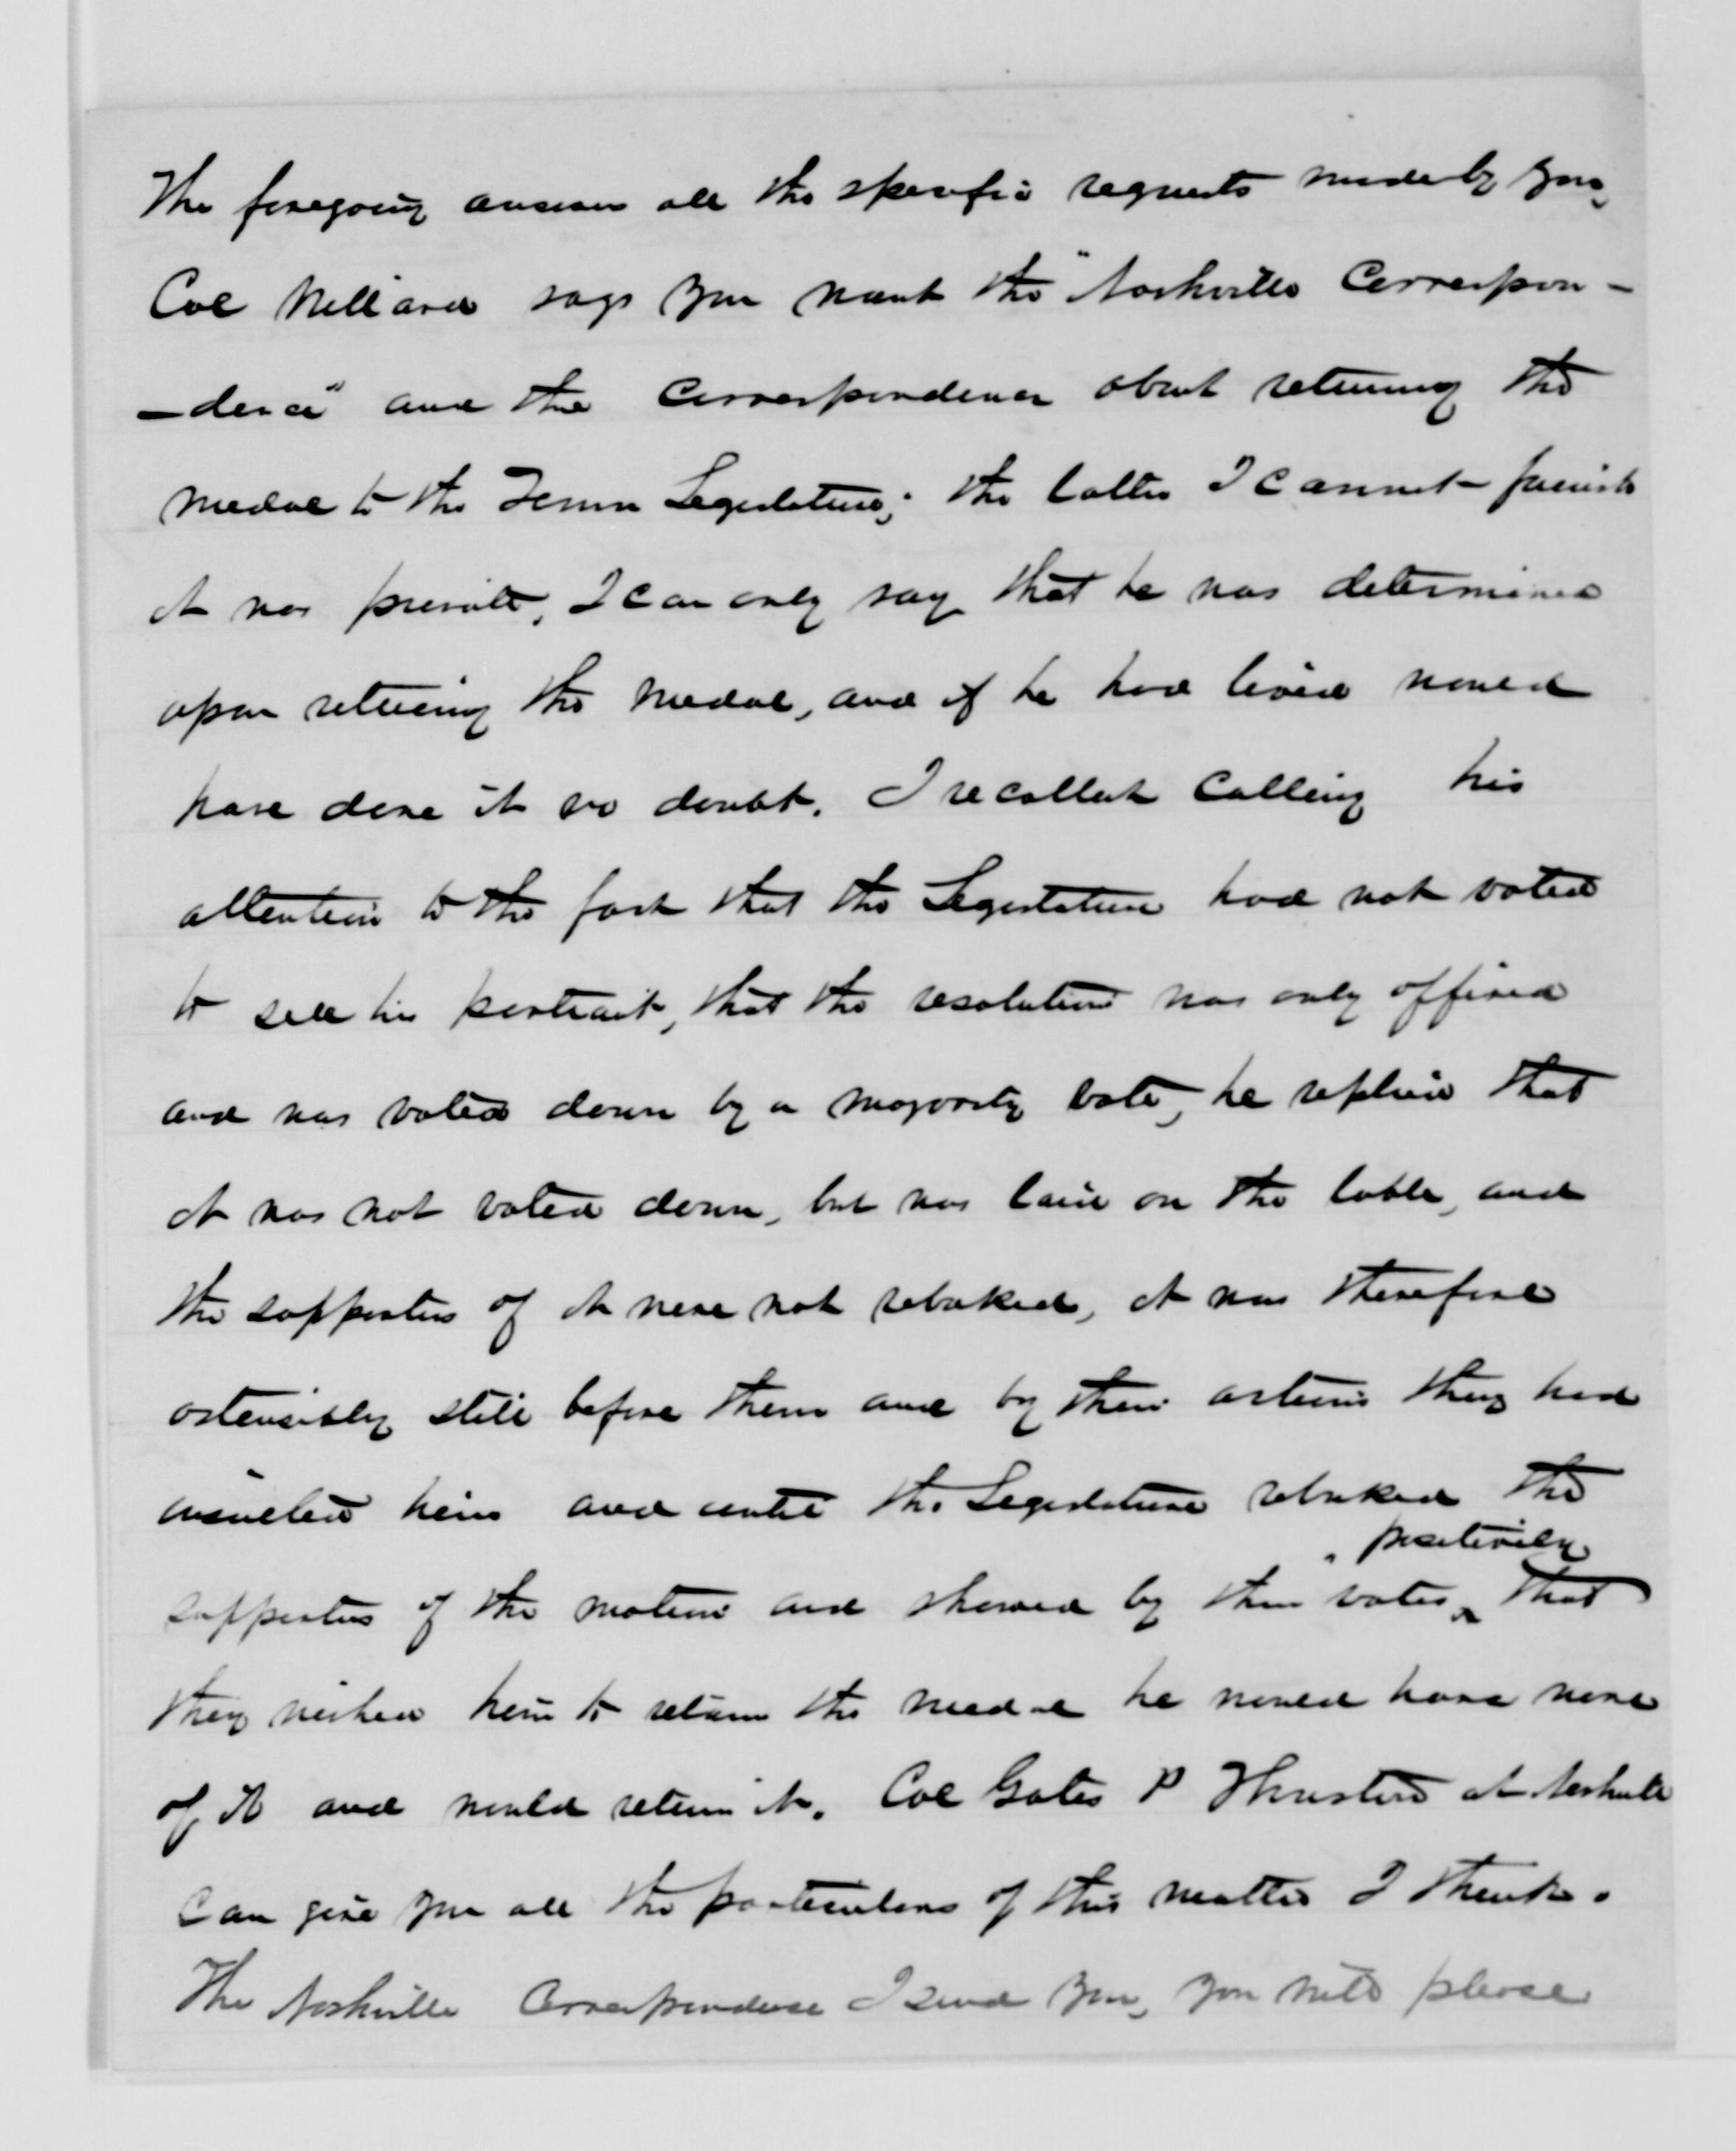 The foregoing answers all the specific requests made by you,
Col Willard says you want the "Nashville Correspon-
-dence" and the Correspondence about returning the
medal to the Tenn Legislature; the latter I cannot furnish
it was private, I can only say that he was determined
upon returning the medal, and if he had lived would
have done it no doubt. I recollect calling his
attention to the fact that the Legislature had not voted
to sell his portrait, that the resolution was only offered
and was voted down by a majority vote, he replied that
it was not voted down, but was laid on the table, and
the supporters of it were not rebuked, it was therefore
ostensibly still before them and by their actions they had
insulted him and until the Legislature rebuked the
positively
supporters of the motion and showed by their votes that
they wished him to retain the medal he would have none
of it and would return it. Col Gates P Thruston at Nashville
can give you all the particulars of this matter I think.
The Nashville Correspondence I send you, you will please